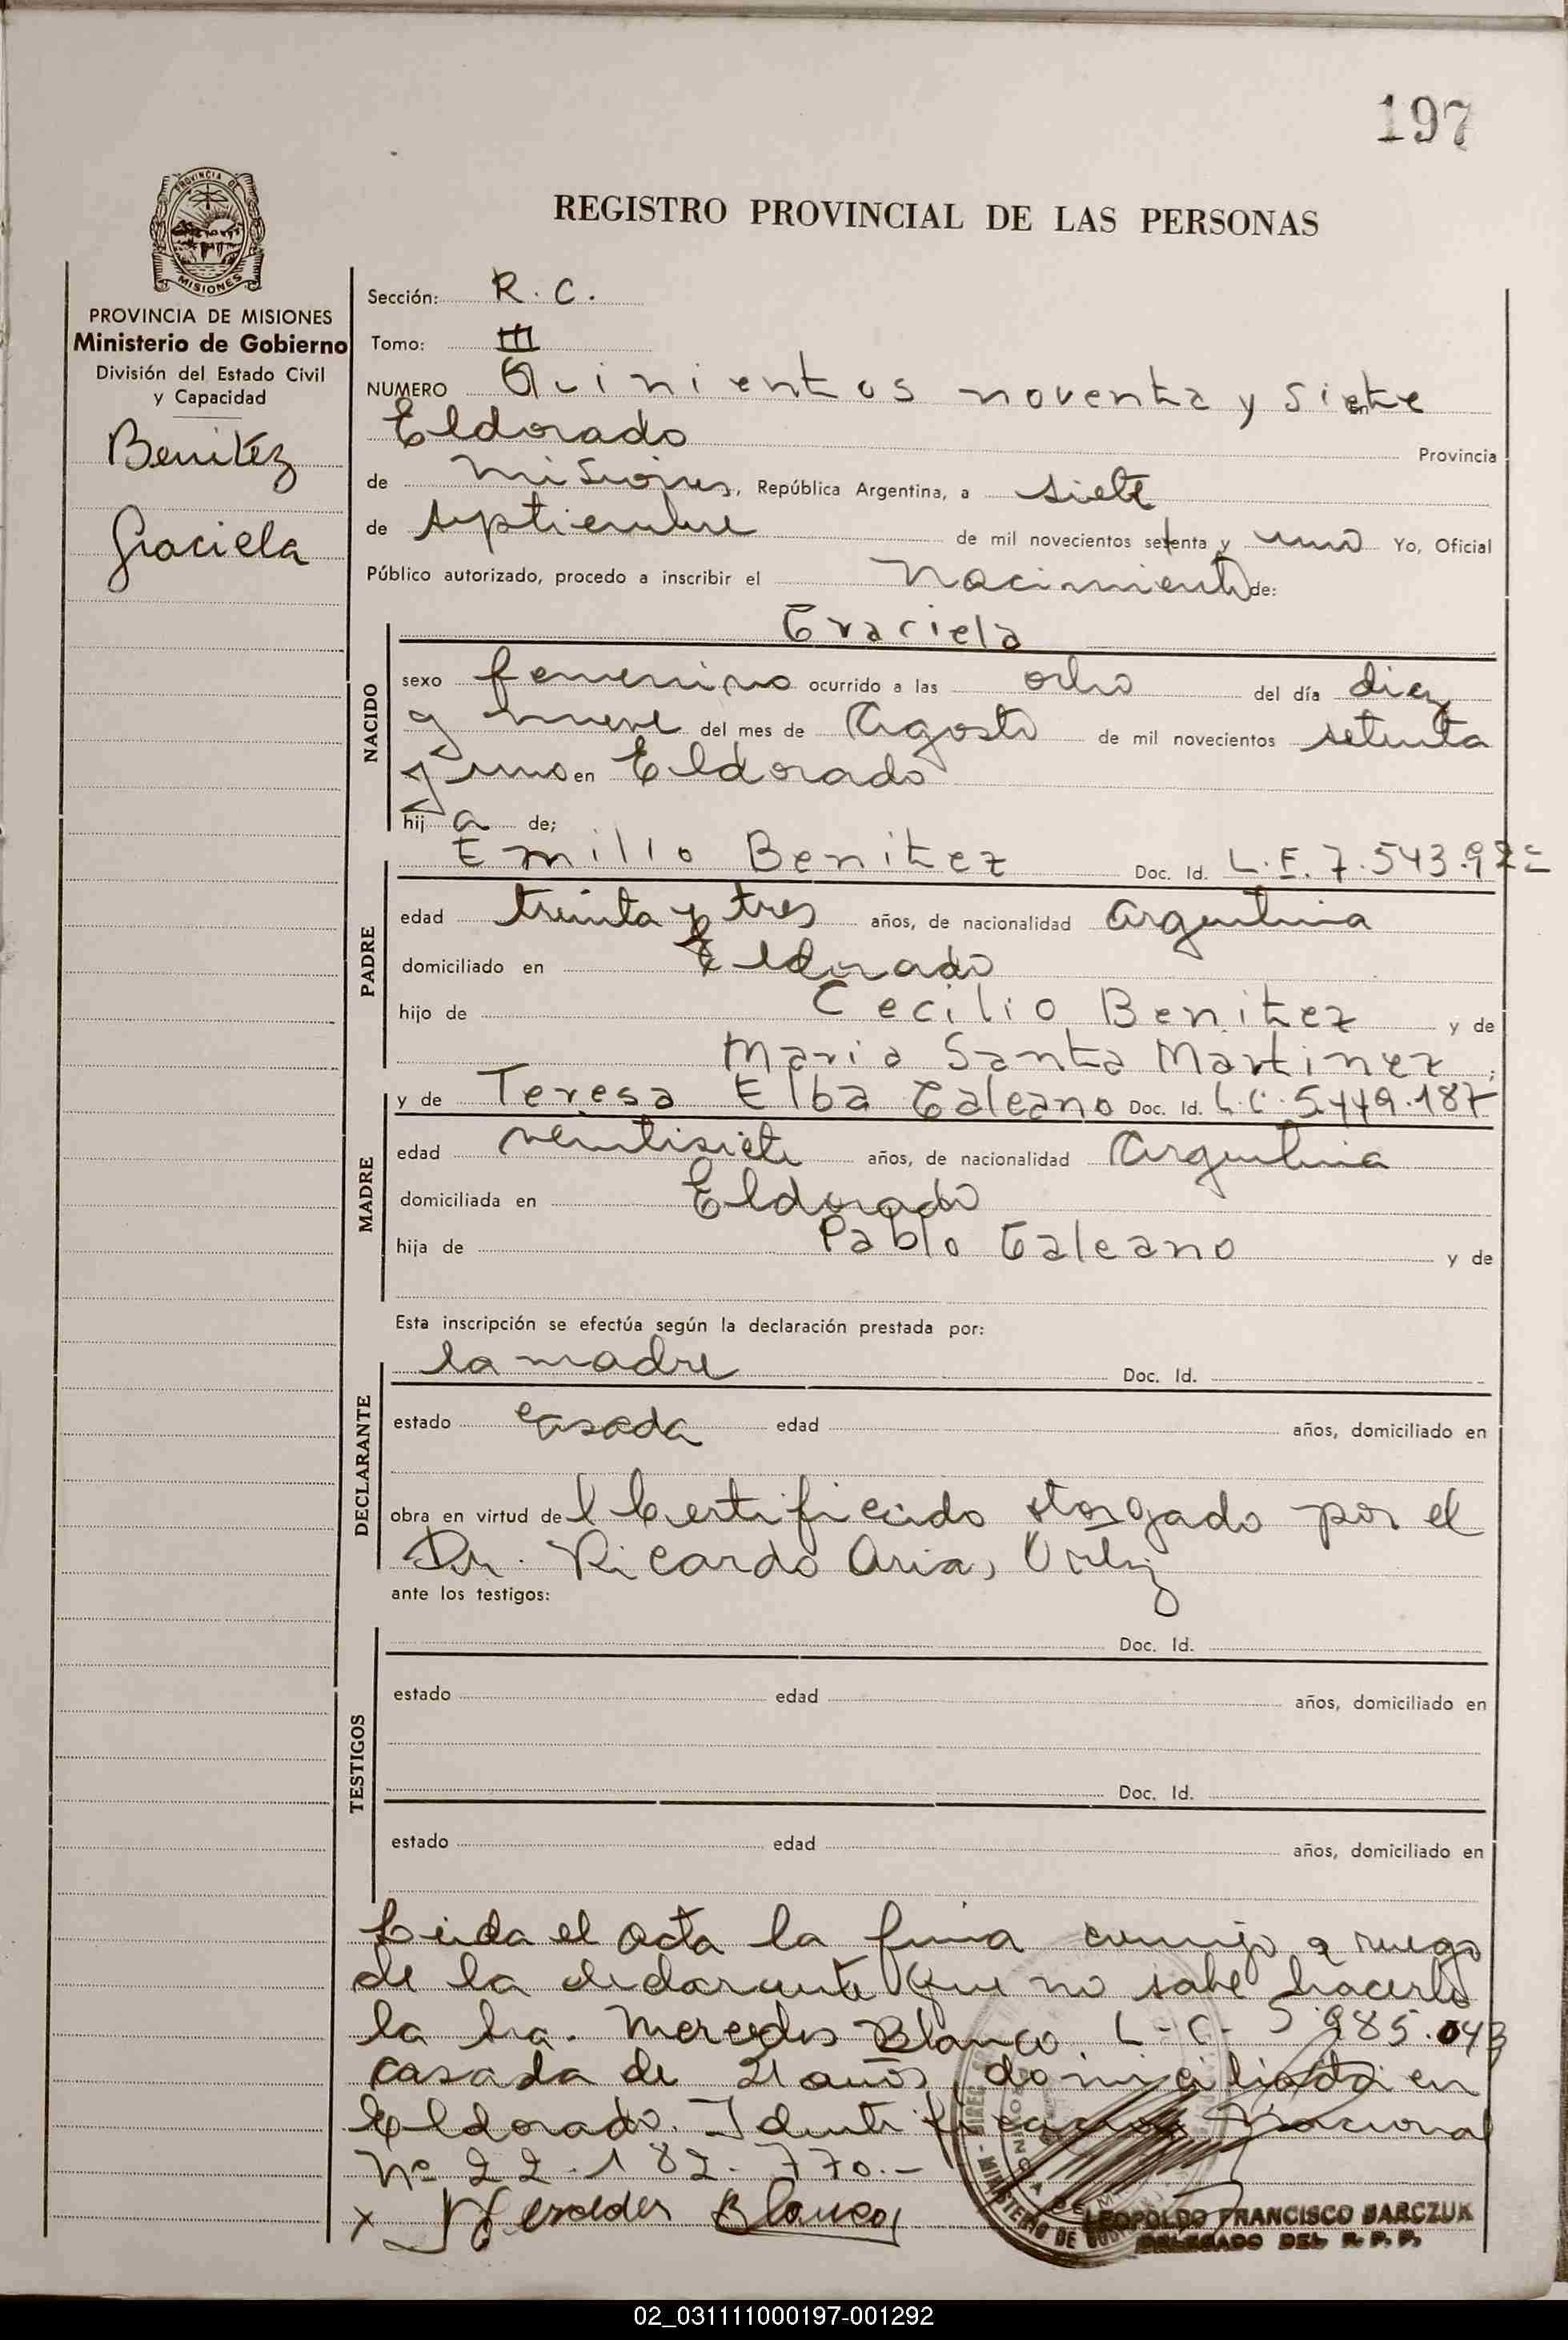 197
PROVINCIA DE
MISIONES
REGISTRO PROVINCIAL DE LAS PERSONAS
PROVINCIA DE MISIONES
Ministerio de Gobierno
División del Estado Civil
y Capacidad
Benitez
Graciela
Sección: R. C.
Tomo: III
NUMERO Quinientos noventa y siete en
Eldorado Provincia
de Misiones, República Argentina, a siete
de septiembre de mil novecientos setenta y uno Yo, Oficial
Público autorizado, procedo a inscribir el Nacimiento de:
Graciela
NACIDO
sexo femenino ocurrido a las ocho del día diez
y nueve del mes de Agosto de mil novecientos setenta
y uno en Eldorado
hij a de;
PADRE
Emilio Benitez Doc. Id. L.E. 7.543.922
edad treinta y tres años, de nacionalidad Argentina
domiciliado en Eldorado
hijo de Cecilio Benitez y de
Maria Santa Martinez ;
MADRE
y de Teresa Elba Galeano Doc. Id. L.C. 5.449.187
edad veintisiete años, de nacionalidad Argentina
domiciliada en Eldorado
hija de Pablo Galeano y de
Esta inscripción se efectúa según la declaración prestada por:
DECLARANTE
la madre Doc. Id.
estado casada edad años, domiciliado en
obra en virtud del Certificado otorgado por el
Dr. Ricardo Arias Ortiz
ante los testigos:
TESTIGOS
Doc. Id.
estado edad años, domiciliado en
Doc. Id.
estado edad años, domiciliado en
Leida el acta la firma conmigo a ruego
de la declarante que no sabe hacerlo
la Sra. Mercedes Blanco. L-C- 5.985.043
casada de 21 años, domiciliada en
Eldorado. Identificacion Nacional
Nº 22.182.770.-
x Mercedes Blanco
LEOPOLDO FRANCISCO BARCZUK
DELEGADO DEL R. P. P.
02_031111000197-001292